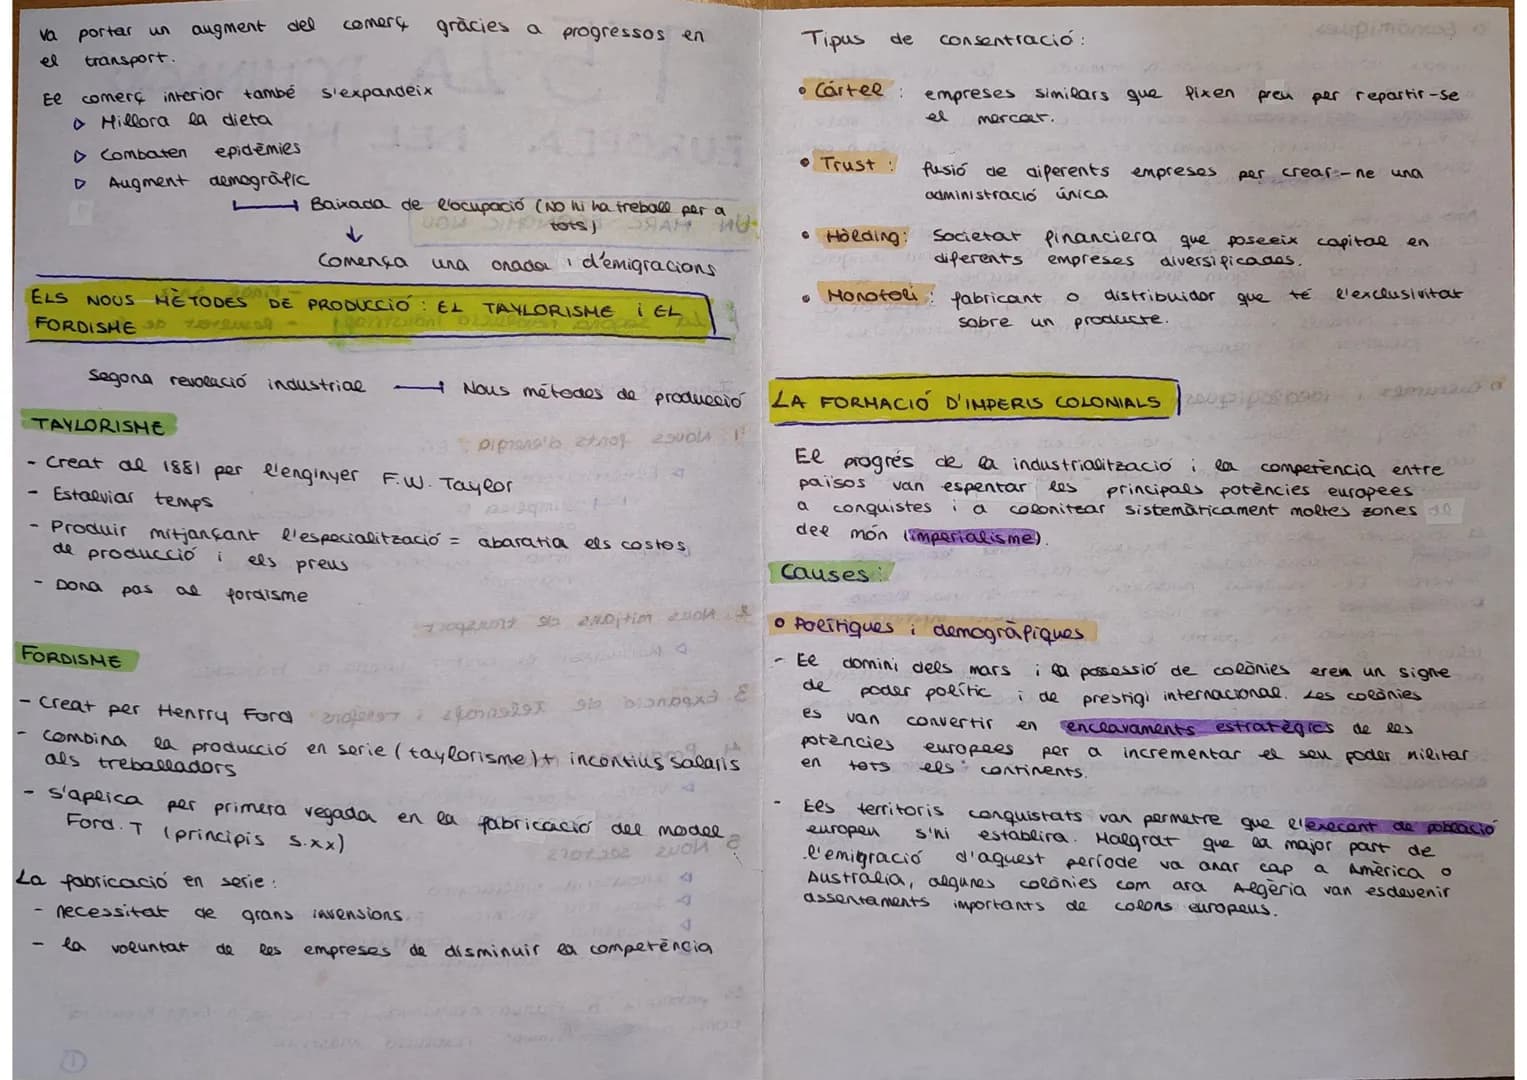 va portar un augment del comerç gràcies a progressos en
el transport.
El comerç interior també s'expandeix
▷ Millora la dieta
▷ Combaten epidèmies
▷ Augment demogràfic
Baixada de l'ocupació (NO hi ha treball per a
tots)
Comença una onada d'emigracions
ELS NOUS MÈTODES DE PRODUCCIÓ: EL TAYLORISME i EL
FORDISME
Segona revolució industrial → Nous mètodes de producció
TAYLORISME
- Creat al 1881 per l'enginyer F.W. Taylor
- Estalviar temps
- Produir mitjançant l'especialització = abaratia els costos
de producció i els preus
- Dona pas al fordisme
FORDISME
- Creat per Henrry Ford
- Combina la producció en serie (taylorisme) + incentius salaris
als treballadors
- S'aplica per primera vegada en la fabricació del model
Ford.T (principis s.xx)
La fabricació en serie:
- necessitat de grans invensions.
- la voluntat de les empreses de disminuir la competència
1
Tipus de consentració:
• Cártel: empreses similars que fixen preu per repartir-se
el mercat.
• Trust: fusió de diferents empreses per crear-ne una
administració única
• Hólding: Societat financiera que poseeix capital en
diferents empreses diversificades.
• Monotoli: fabricant o distribuidor que té l'exclusivitat
sobre un producte.
LA FORMACIÓ D'IMPERIS COLONIALS
El progrés de la industrialització i la competència entre
països van espentar les principals potències europees
a conquistes i a colonitzar sistemàticament moltes zones
del món (imperialisme).
Causes:
• Polítiques i demogràfiques
- El domini dels mars i la possessió de colònies eren un signe
de poder polític i de prestigi internacional. Les colònies
es van convertir en enclavaments estratègics de les
potències europees per a incrementar el seu poder militar
en tots els continents.
- Els territoris conquistats van permetre que l'execent de població
europeu s'ni establira. Malgrat que la major part de
l'emigració d'aquest període va anar cap a Amèrica o
Austràlia, algunes colònies com ara Algèria van esdevenir
assentaments importants de colons europeus.